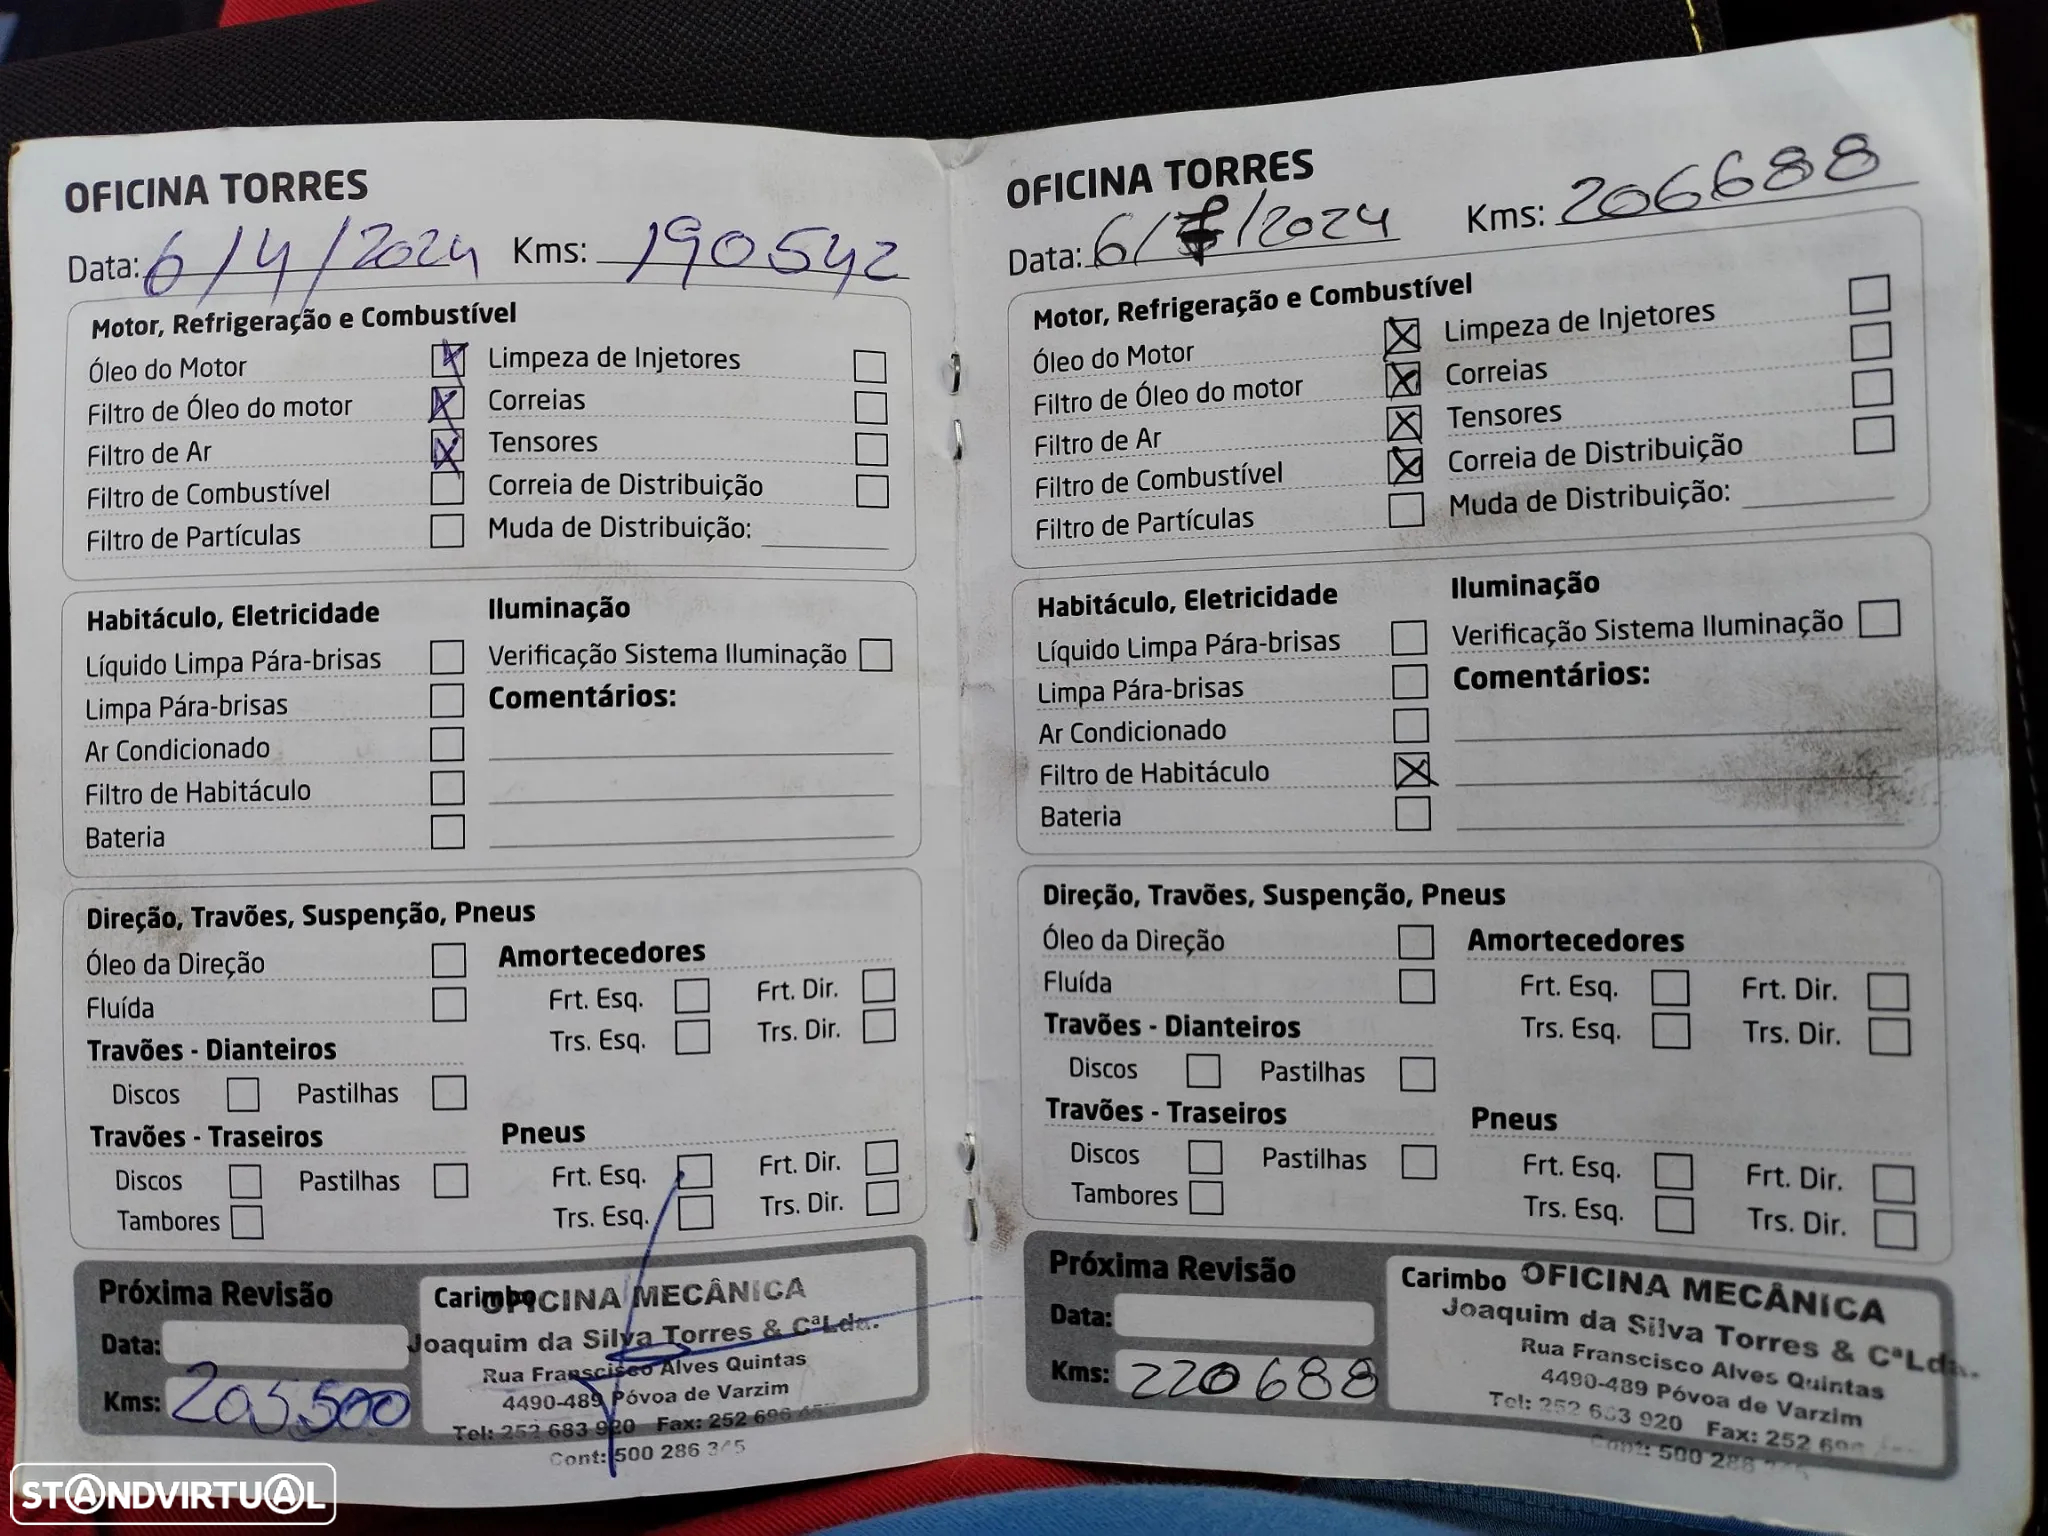 OFICINA TORRES
Data: 6/4/2024 Kms: 190542
Motor, Refrigeração e Combustível
Óleo do Motor Limpeza de Injetores
Filtro de Óleo do motor Correias
Filtro de Ar Tensores
Filtro de Combustível Correia de Distribuição
Filtro de Partículas Muda de Distribuição:
Habitáculo, Eletricidade Iluminação
Líquido Limpa Pára-brisas Verificação Sistema Iluminação
Limpa Pára-brisas Comentários:
Ar Condicionado
Filtro de Habitáculo
Bateria
Direção, Travões, Suspenção, Pneus
Óleo da Direção Amortecedores
Fluída Frt. Esq. Frt. Dir.
Travões - Dianteiros Trs. Esq. Trs. Dir.
Discos Pastilhas
Travões - Traseiros Pneus
Discos Pastilhas Frt. Esq. Frt. Dir.
Tambores Trs. Esq. Trs. Dir.
Próxima Revisão Carimbo
Data:
Kms: 205500
OFICINA MECÂNICA
Joaquim da Silva Torres & CªLda.
Rua Franscisco Alves Quintas
4490-489 Póvoa de Varzim
Tel: 252 683 920 Fax: 252 696
Cont: 500 286 345
OFICINA TORRES
Data: 6/ /2024 Kms: 206688
Motor, Refrigeração e Combustível
Óleo do Motor Limpeza de Injetores
Filtro de Óleo do motor Correias
Filtro de Ar Tensores
Filtro de Combustível Correia de Distribuição
Filtro de Partículas Muda de Distribuição:
Habitáculo, Eletricidade Iluminação
Líquido Limpa Pára-brisas Verificação Sistema Iluminação
Limpa Pára-brisas Comentários:
Ar Condicionado
Filtro de Habitáculo
Bateria
Direção, Travões, Suspenção, Pneus
Óleo da Direção Amortecedores
Fluída Frt. Esq. Frt. Dir.
Travões - Dianteiros Trs. Esq. Trs. Dir.
Discos Pastilhas
Travões - Traseiros Pneus
Discos Pastilhas Frt. Esq. Frt. Dir.
Tambores Trs. Esq. Trs. Dir.
Próxima Revisão Carimbo
Data:
Kms: 220688
OFICINA MECÂNICA
Joaquim da Silva Torres & CªLda.
Rua Franscisco Alves Quintas
4490-489 Póvoa de Varzim
Tel: 252 683 920 Fax: 252 696
Cont: 500 286
STANDVIRTUAL